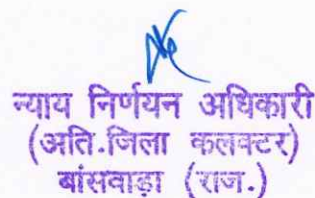 न्याय निर्णयन अधिकारी
(अति.जिला कलक्टर)
बांसवाड़ा (राज.)